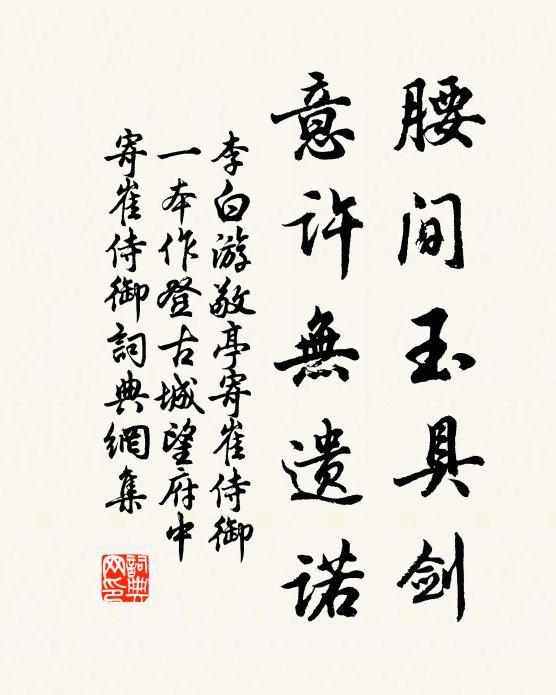 腰间玉具剑
意许無遗诺
李白游敬亭寄崔侍御
一本作登古城望府中
寄崔侍御詞典網集
詞典
网印